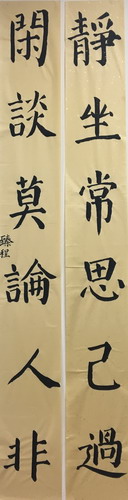 靜坐常思己過
閑談莫論人非
臻程